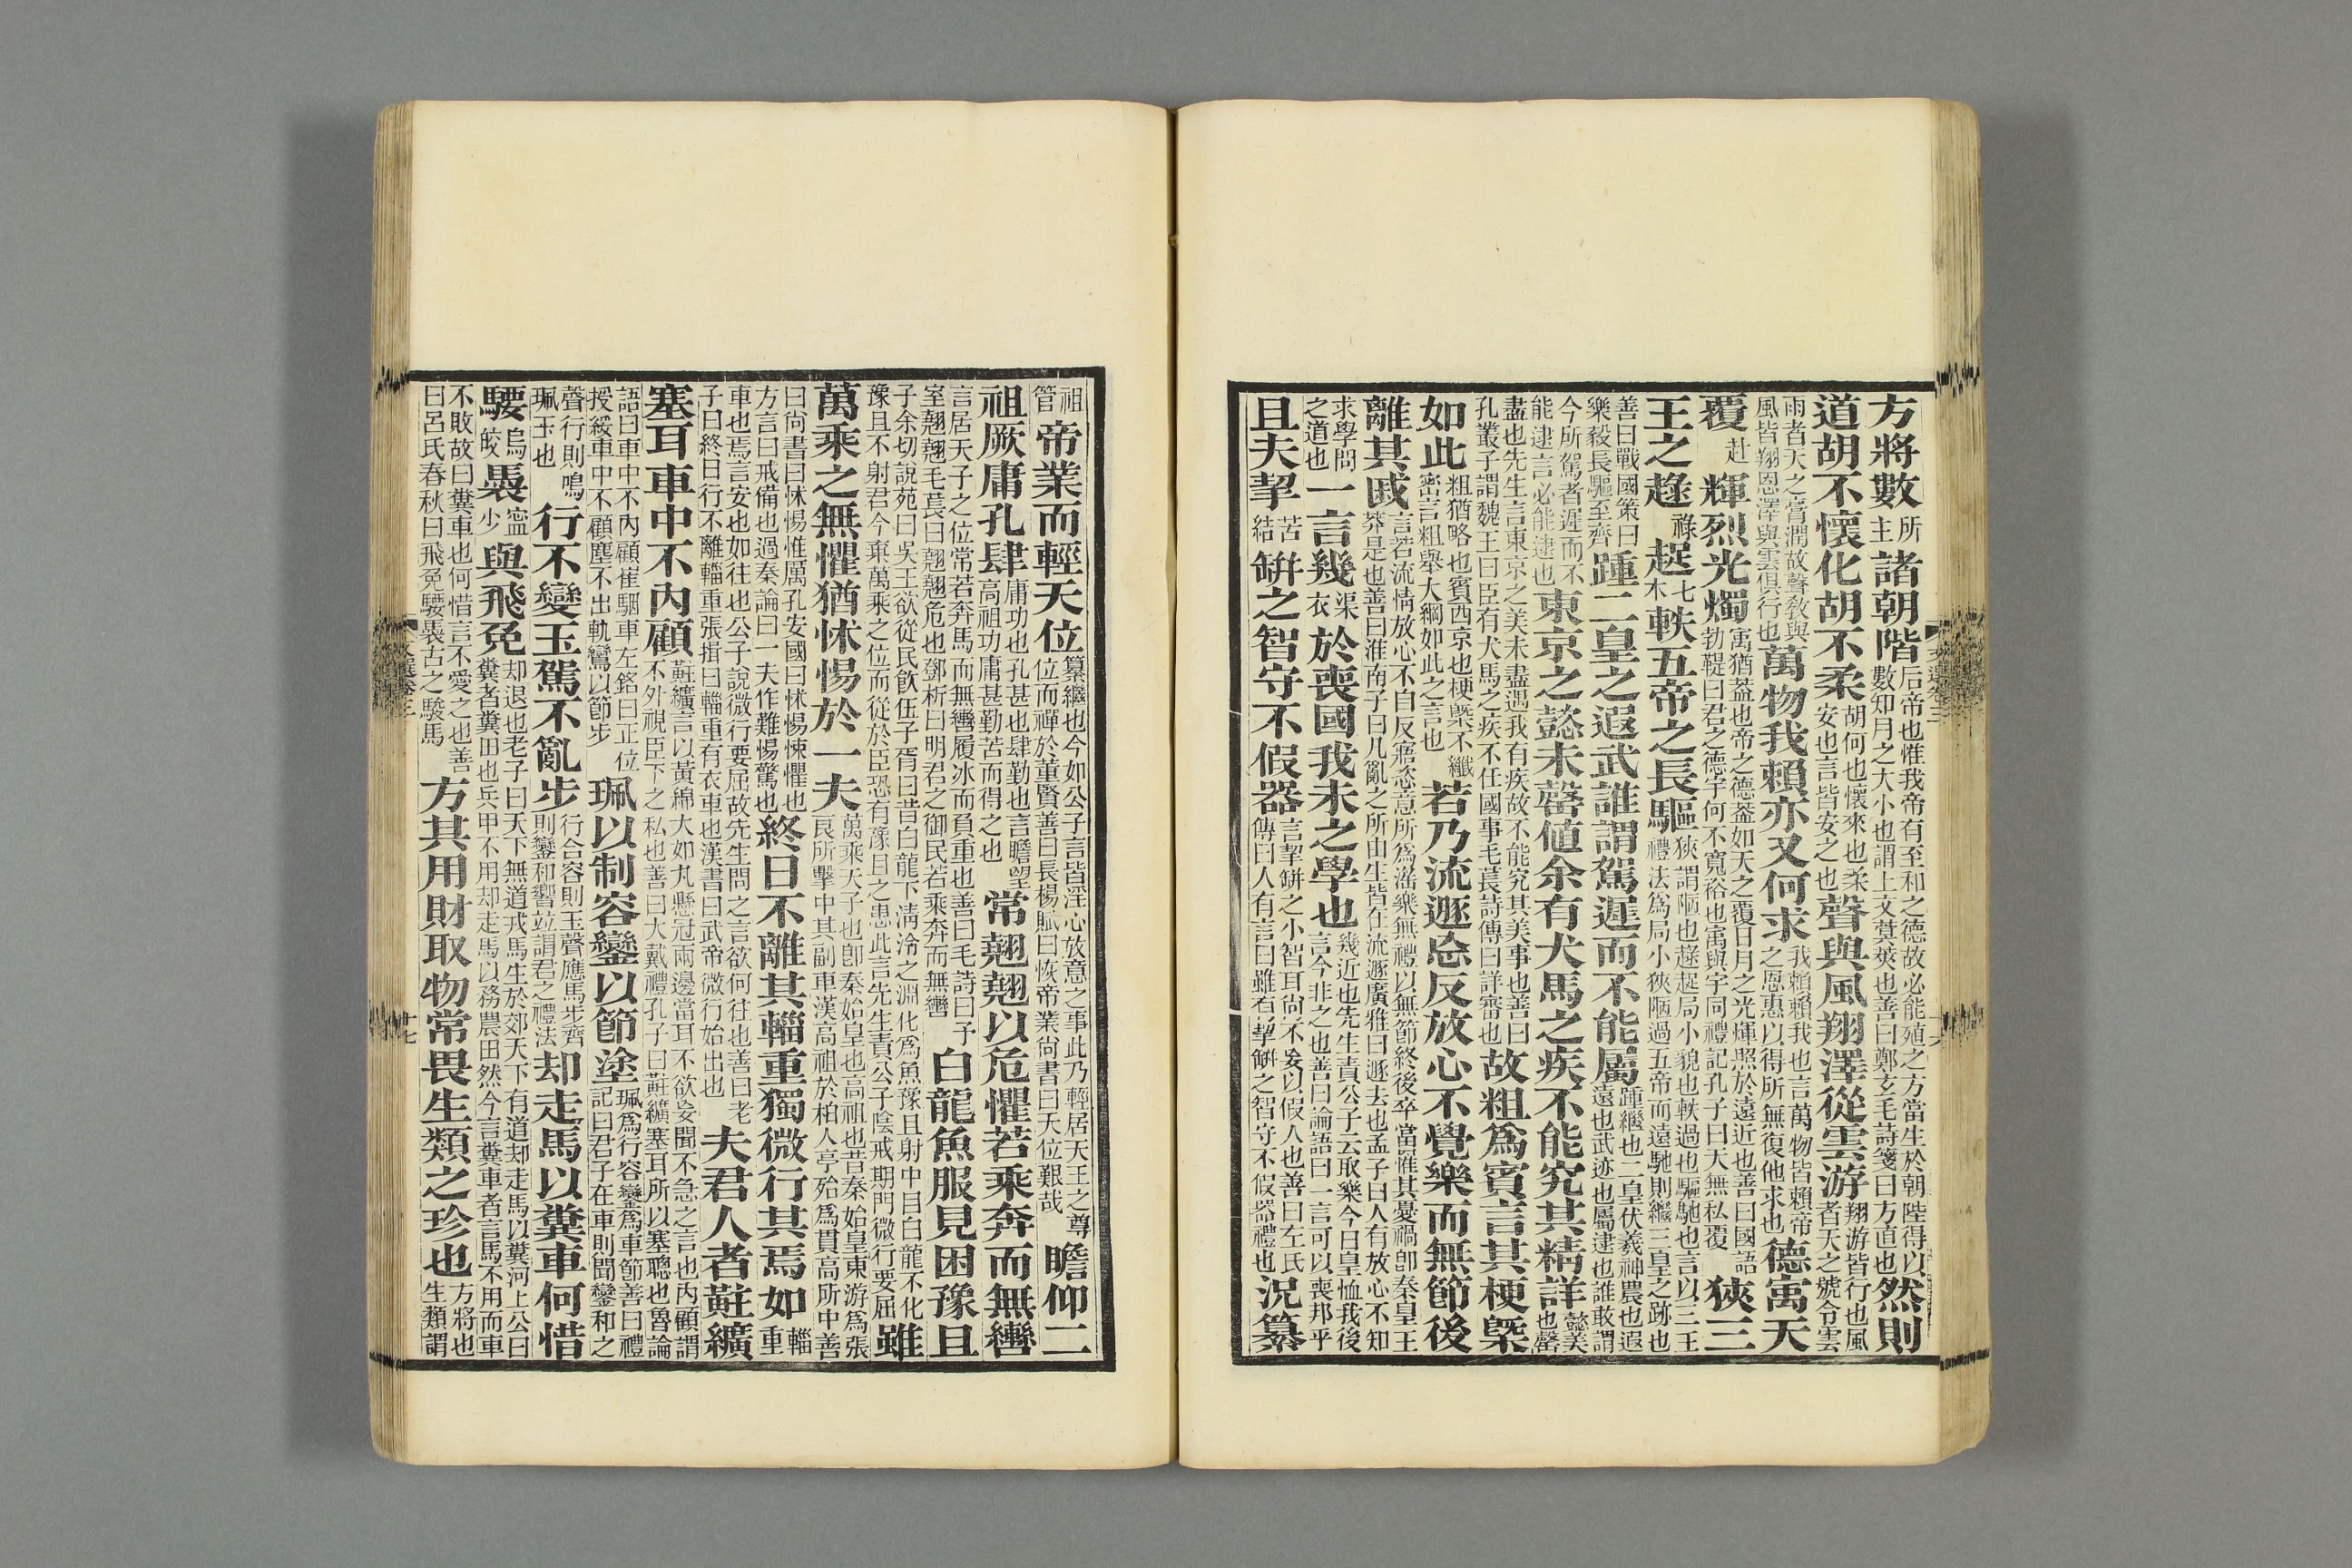 方將數所主諸朝階后帝也惟我帝有至和之德故必能殖之方當生於朝陛得以數知月之大小也謂上文蓂莢也善曰鄭玄毛詩箋曰方直也然則
道胡不懷化胡不柔胡何也懷來也柔安也言皆安之也聲與風翔澤從雲游翔游皆行也風者天之號令雲
雨者天之膏潤故聲敎與風皆翔恩澤與雲俱行也萬物我賴亦又何求我賴賴我也言萬物皆賴帝之恩惠以得所無復他求也德寓天
覆赴輝烈光燭寓猶葢也帝之德葢如天之覆日月之光煇照於遠近也善曰國語勃鞮曰君之德宇何不寬裕也寓與宇同禮記孔子曰天無私覆狹三
王之趢祿趗七木軼五帝之長驅狹謂陋也趢趗局小貌也軼過也驅馳也言以三王禮法爲局小狹陋過五帝而遠馳則繼三皇之跡也
善曰戰國策曰樂毅長驅至齊踵二皇之遐武誰謂駕遲而不能屬踵繼也二皇伏羲神農也遐遠也武迹也屬逮也誰敢謂
今所駕者遲而不能逮言必能逮也東京之懿未罄値余有犬馬之疾不能究其精詳懿美也罄
盡也先生言東京之美未盡遇我有疾故不能究其美事也善曰孔叢子謂魏王曰臣有犬馬之疾不任國事毛萇詩傳曰詳審也故粗爲賓言其梗槩
如此粗猶略也賓西京也梗槩不纖密言粗舉大綱如此之言也若乃流遯忘反放心不覺樂而無節後
離其戚言若流情放心不自反寤恣意所爲滛樂無禮以無節終後卒當罹其憂禍卽秦皇王莽是也善曰淮南子曰凡亂之所由生皆在流遯廣雅曰遯去也孟子曰人有放心不知
求學問之道也一言幾渠衣於喪國我未之學也幾近也先生責公子云取樂今日皇恤我後言今非之也善曰論語曰一言可以喪邦乎
且夫挈苦結缾之智守不假器言挈缾之小智耳尚不妄以假人也善曰左氏傳曰人有言曰雖有挈缾之智守不假器禮也況纂
祖管帝業而輕天位纂繼也今如公子言皆淫心放意之事此乃輕居天王之尊位而禪於董賢善曰長楊賦曰恢帝業尚書曰天位艱哉瞻仰二
祖厥庸孔肆庸功也孔甚也肆勤也言瞻望高祖功庸甚勤苦而得之也常翹翹以危懼若乘奔而無轡
言居天子之位常若奔馬而無轡履冰而負重也善曰毛詩曰予室翹翹毛萇曰翹翹危也鄧析曰明君之御民若乘奔而無轡白龍魚服見困豫且
子余切說苑曰吳王欲從民飮伍子胥曰昔白龍下淸泠之淵化爲魚豫且射中目白龍不化豫且不射君今棄萬乘之位而從於臣恐有豫且之患此言先生責公子陰戒期門微行要屈雖
萬乘之無懼猶怵惕於一夫萬乘天子也卽秦始皇也高祖也昔秦始皇東游爲張良所擊中其副車漢高祖於柏人亭殆爲貫高所中善
曰尚書曰怵惕惟厲孔安國曰怵惕悚懼也方言曰戒備也過秦論曰一夫作難惕驚也終日不離其輜重獨微行其焉如輜重
車也焉言安也如往也公子說微行要屈故先生問之言欲何往也善曰老子曰終日行不離輜重張揖曰輜重有衣車也漢書曰武帝微行始出也夫君人者黈纊
塞耳車中不內顧黈纊言以黃綿大如丸懸冠兩邊當耳不欲妄聞不急之言也內顧謂不外視臣下之私也善曰大戴禮孔子曰黈纊塞耳所以塞聰也魯論
語曰車中不內顧崔駰車左銘曰正位授綏車中不顧塵不出軌鸞以節步珮以制容鑾以節塗珮爲行容鑾爲車節善曰禮記曰君子在車則聞鑾和之
聲行則鳴珮玉也行不變玉駕不亂步行合容則玉聲應馬步齊則鑾和響竝謂君之禮法却走馬以糞車何惜
騕烏皎褭少寍與飛兔却退也老子曰天下無道戎馬生於郊天下有道却走馬以糞河上公曰糞者糞田也兵甲不用却走馬以務農田然今言糞車者言馬不用而車
不敗故曰糞車也何惜言不愛之也善曰呂氏春秋曰飛兔騕褭古之駿馬方其用財取物常畏生類之珍也方將也生類謂
文選卷三
十七